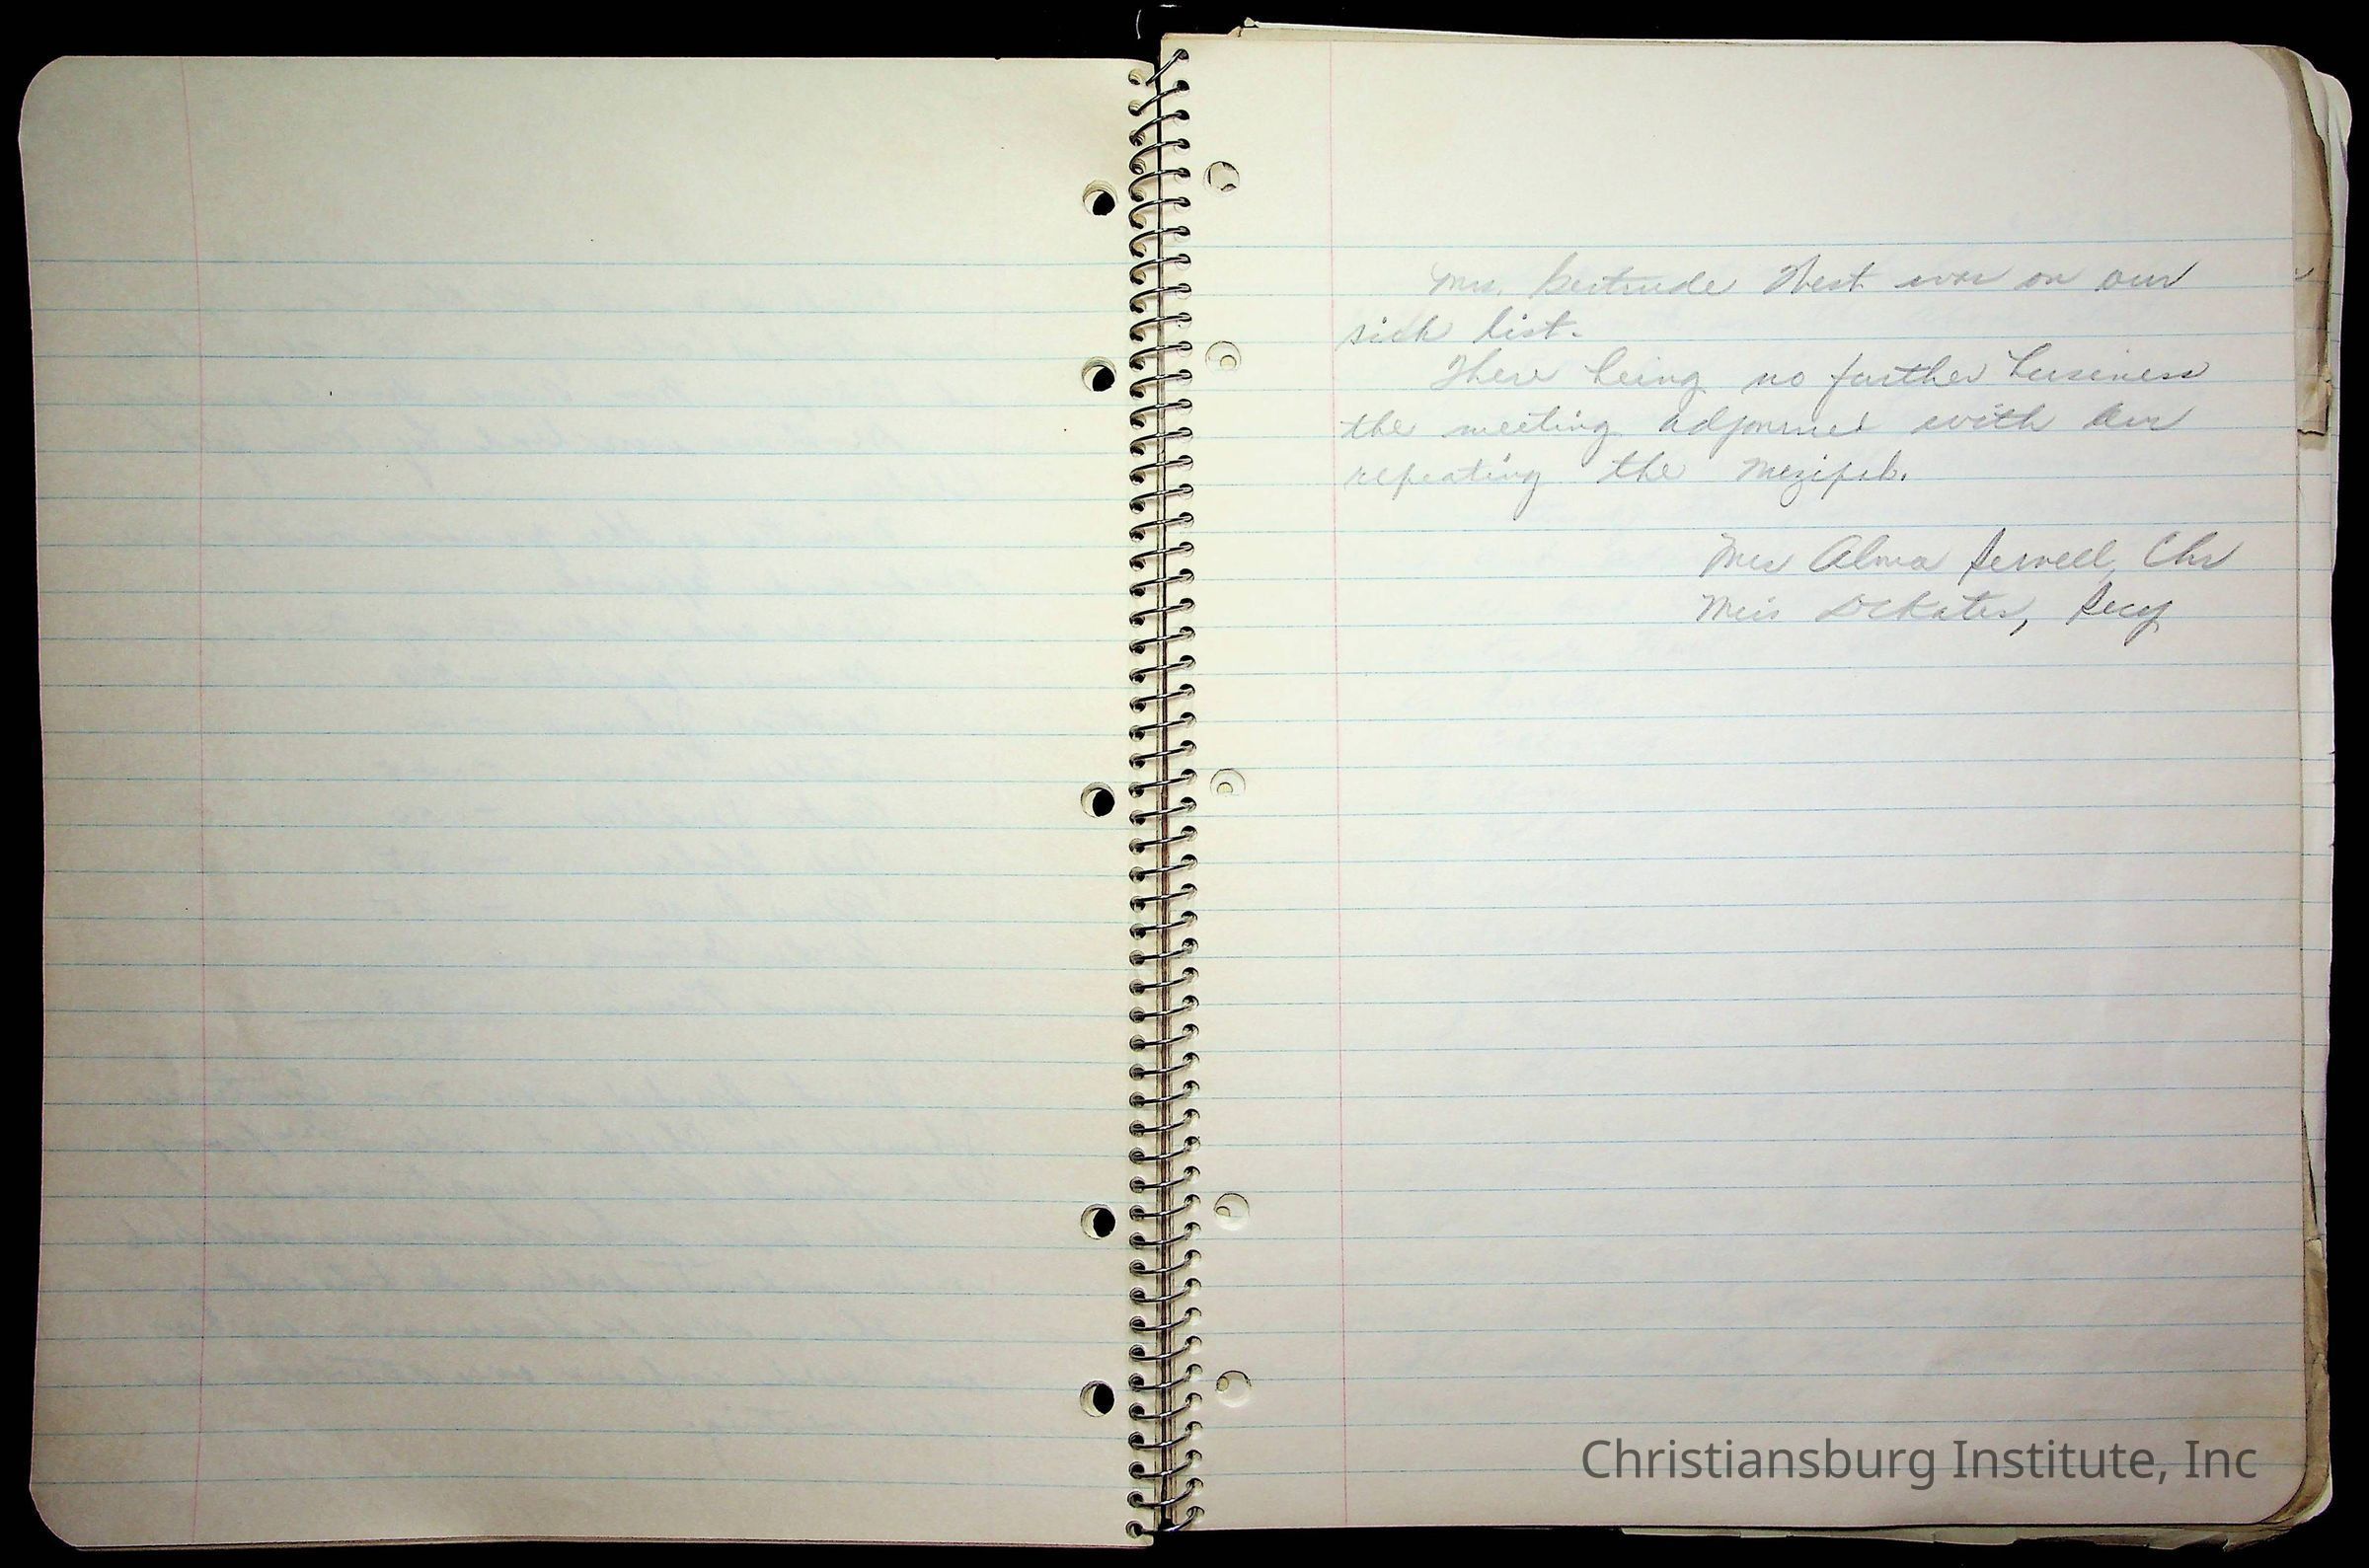 Mrs. Gertrude West was on our
sick list.
There being no further business
the meeting adjourned with our
repeating the Mezipah.
Mrs Alma Sewell, Chr
Miss Kates, Secy
Christiansburg Institute, Inc